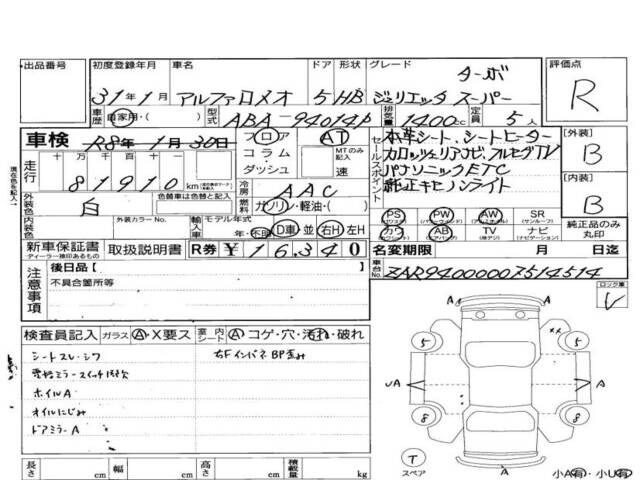 出品番号 初度登録年月 車名 ドア 形状 グレード 評価点
ターボ
31年1月 アルファロメオ 5 HB ジュリエッタ スーパー R
車歴 自家用・( ) 型式 ABA-94014P 排気量 1400cc 定員 5人
車検 R8年1月30日 フロア AT 本革シート、シートヒーター 【外装】
コラム・ MTのみ記入 カロッツェリアナビ、フルセグTV B
走行 十万 万 千 百 十 ダッシュ 速 セールスポイント パナソニックETC 【内装】
81910km 冷房 AAC 純正キセノンライト B
外装色 白 色替車は色替と記入 燃料 ガソリン・軽油・( )
外装カラーNo. PS PW AW SR 純正品のみ丸印
内装色 輸入車 モデル年式 年・不明 D車 並 右H 左H カワ AB TV ナビ
新車保証書 取扱説明書 R券 ¥16,340 名変期限 月 日迄
ディーラー捺印あるもの
注意事項 後日品【 】 車台No. ZAR94000007514514
不具合箇所等 ロック車
レ
検査員記入 ガラス A・X要ス 室内シート A コゲ・穴・汚れ・破れ
シートスレ・シワ 右FインパネBP歪み
電格ミラースイッチ1ヶ欠
ホイルA
オイルにじみ
ドアミラーA
5 ×× 5
A A A
8 8
T
スペア A 小A有・小U有
長さ cm 幅 cm 高さ cm 積載量 kg